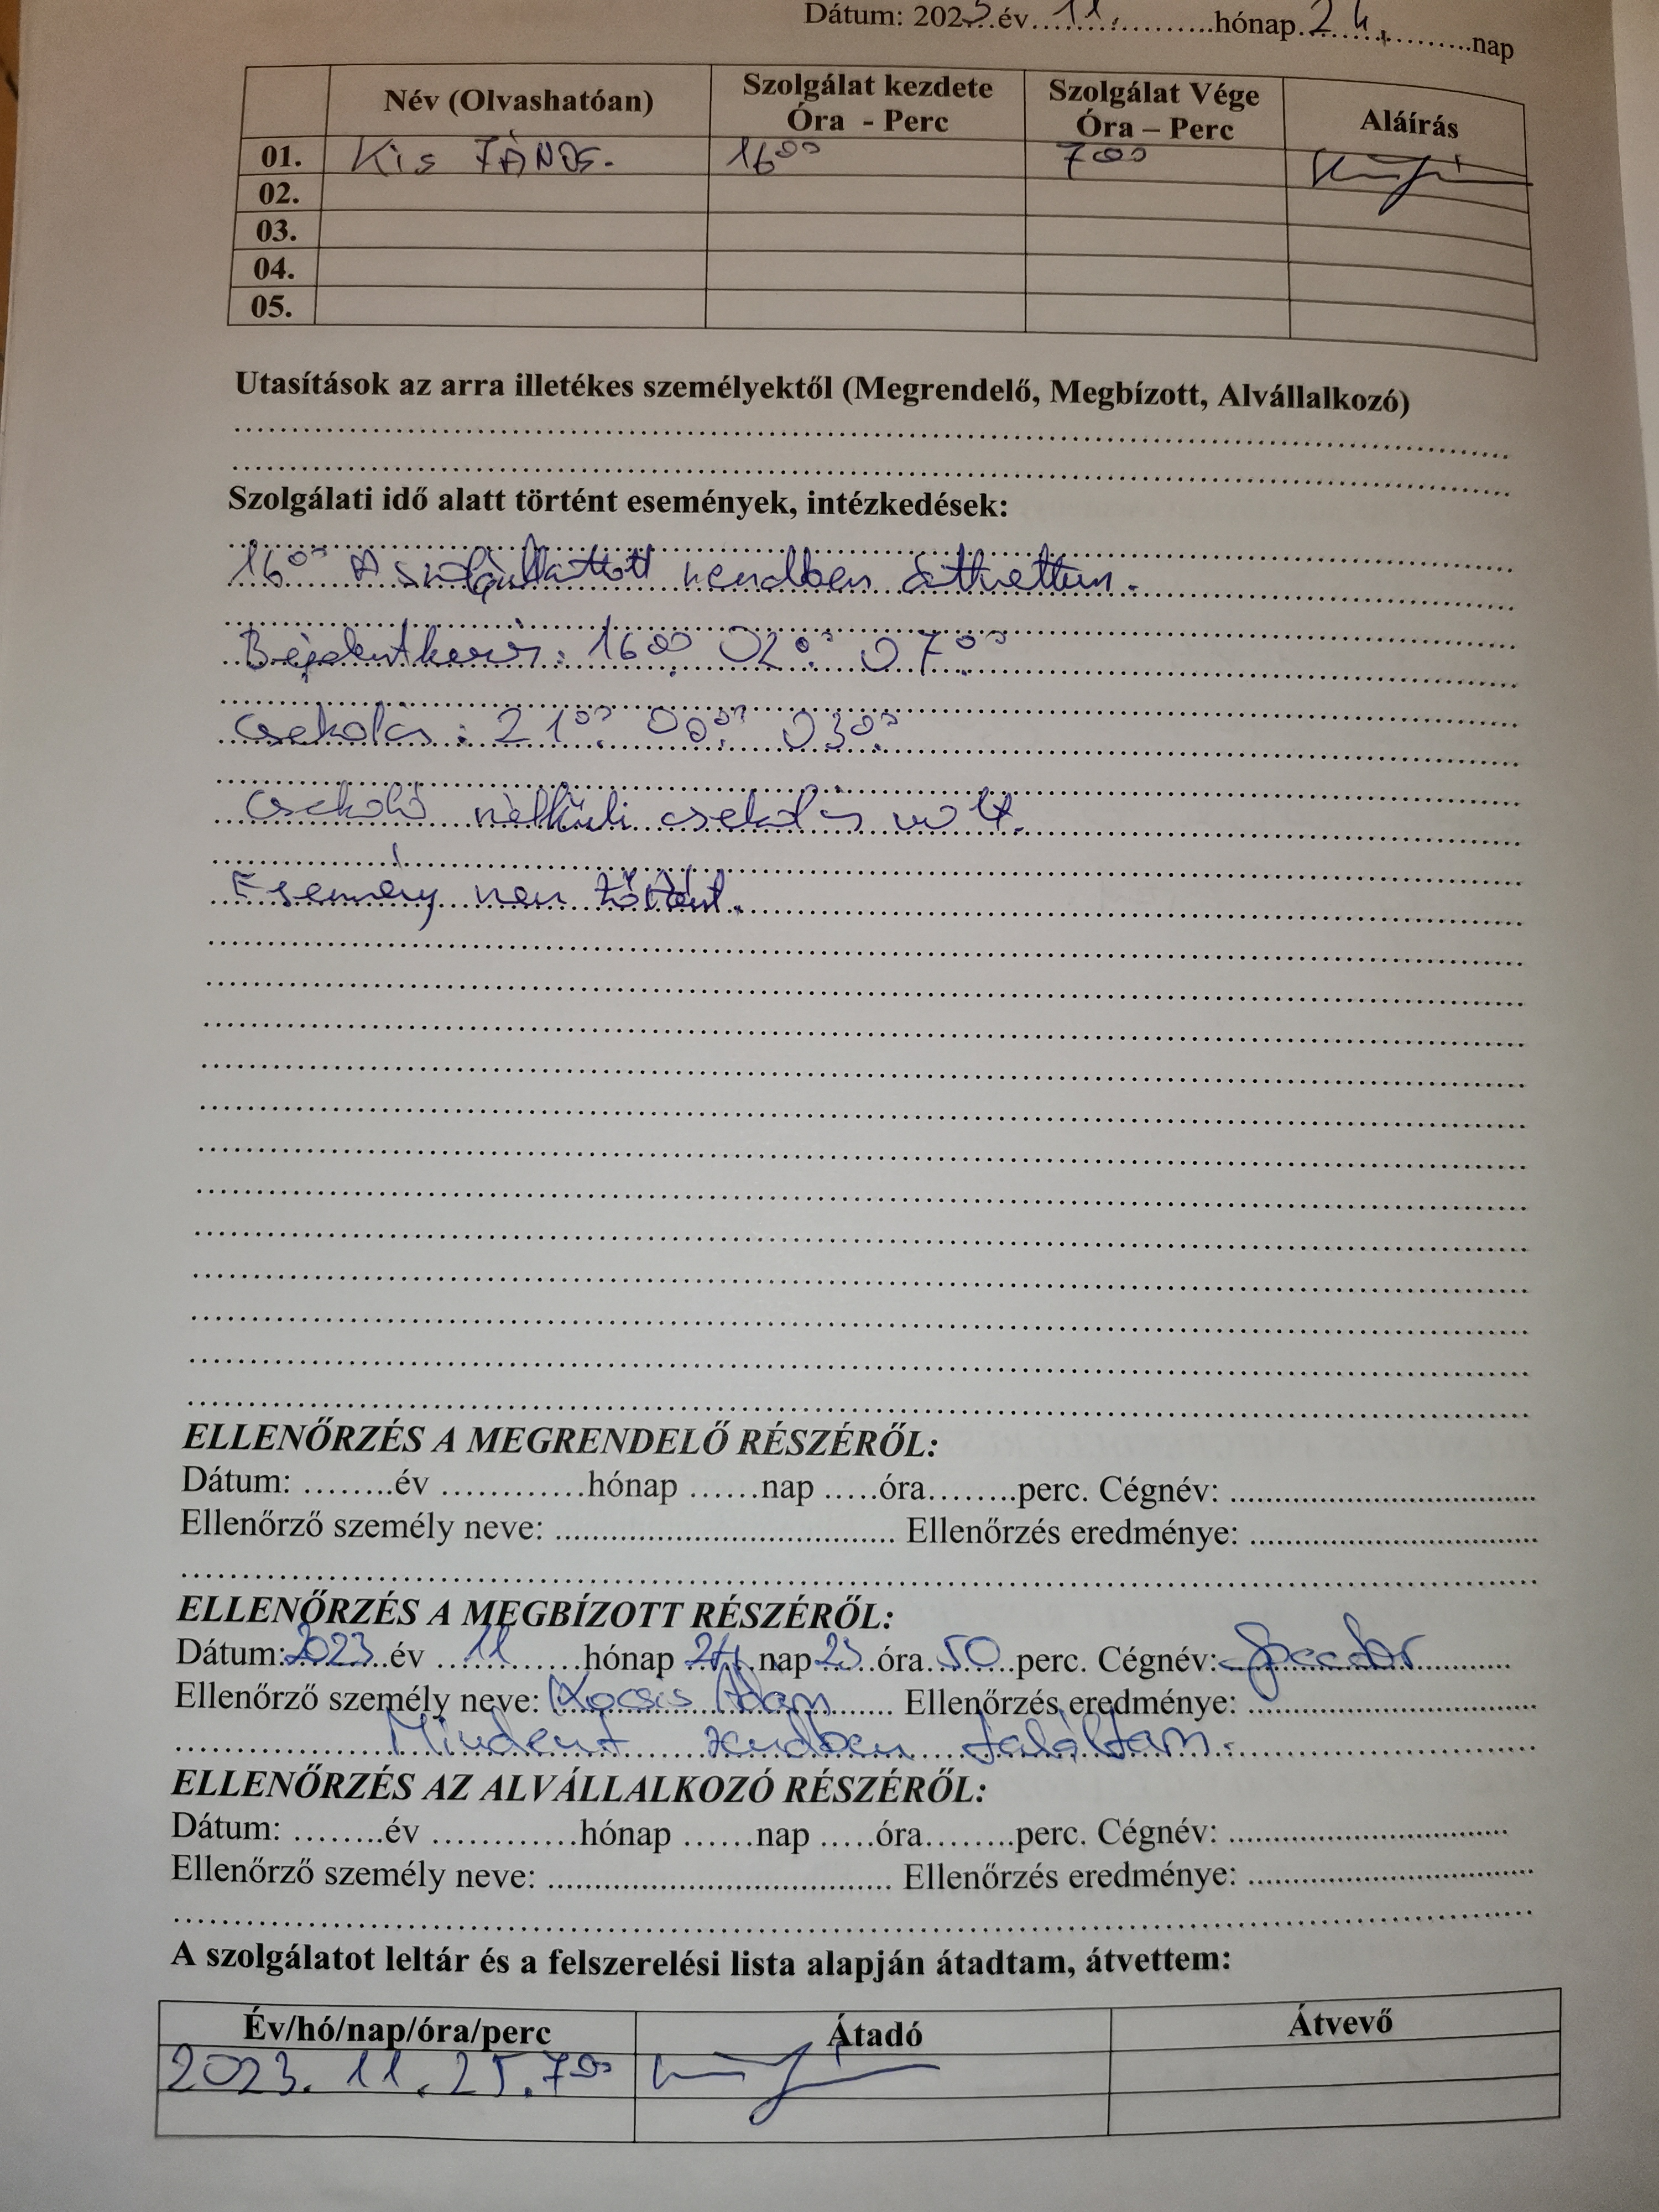 Dátum: 2023 év 11. hónap 24. nap
Név (Olvashatóan) Szolgálat kezdete Óra - Perc Szolgálat Vége Óra – Perc Aláírás
01. Kis JÁNOS. 16⁰⁰ 7⁰⁰
02.
03.
04.
05.
Utasítások az arra illetékes személyektől (Megrendelő, Megbízott, Alvállalkozó)
Szolgálati idő alatt történt események, intézkedések:
16⁰⁰ A rendben
Bejelentkezés: 16⁰⁰ 02⁰⁰ 07⁰⁰
csekolás: 21⁰⁰ 00⁰⁰ 03⁰⁰
csekoló nélküli csekolás volt.
Esemény nem történt.
ELLENŐRZÉS A MEGRENDELŐ RÉSZÉRŐL:
Dátum: ........év ............hónap ......nap .....óra........perc. Cégnév: ..............................
Ellenőrző személy neve: .................................... Ellenőrzés eredménye: ..............................
ELLENŐRZÉS A MEGBÍZOTT RÉSZÉRŐL:
Dátum: 2023 év 11 hónap 24. nap 23 óra 50 perc. Cégnév:
Ellenőrző személy neve: Kocsis Ádám Ellenőrzés eredménye:
Mindent rendben találtam.
ELLENŐRZÉS AZ ALVÁLLALKOZÓ RÉSZÉRŐL:
Dátum: ........év ............hónap ......nap .....óra........perc. Cégnév: ..............................
Ellenőrző személy neve: .................................... Ellenőrzés eredménye: ..............................
A szolgálatot leltár és a felszerelési lista alapján átadtam, átvettem:
Év/hó/nap/óra/perc Átadó Átvevő
2023. 11. 25. 7⁰⁰